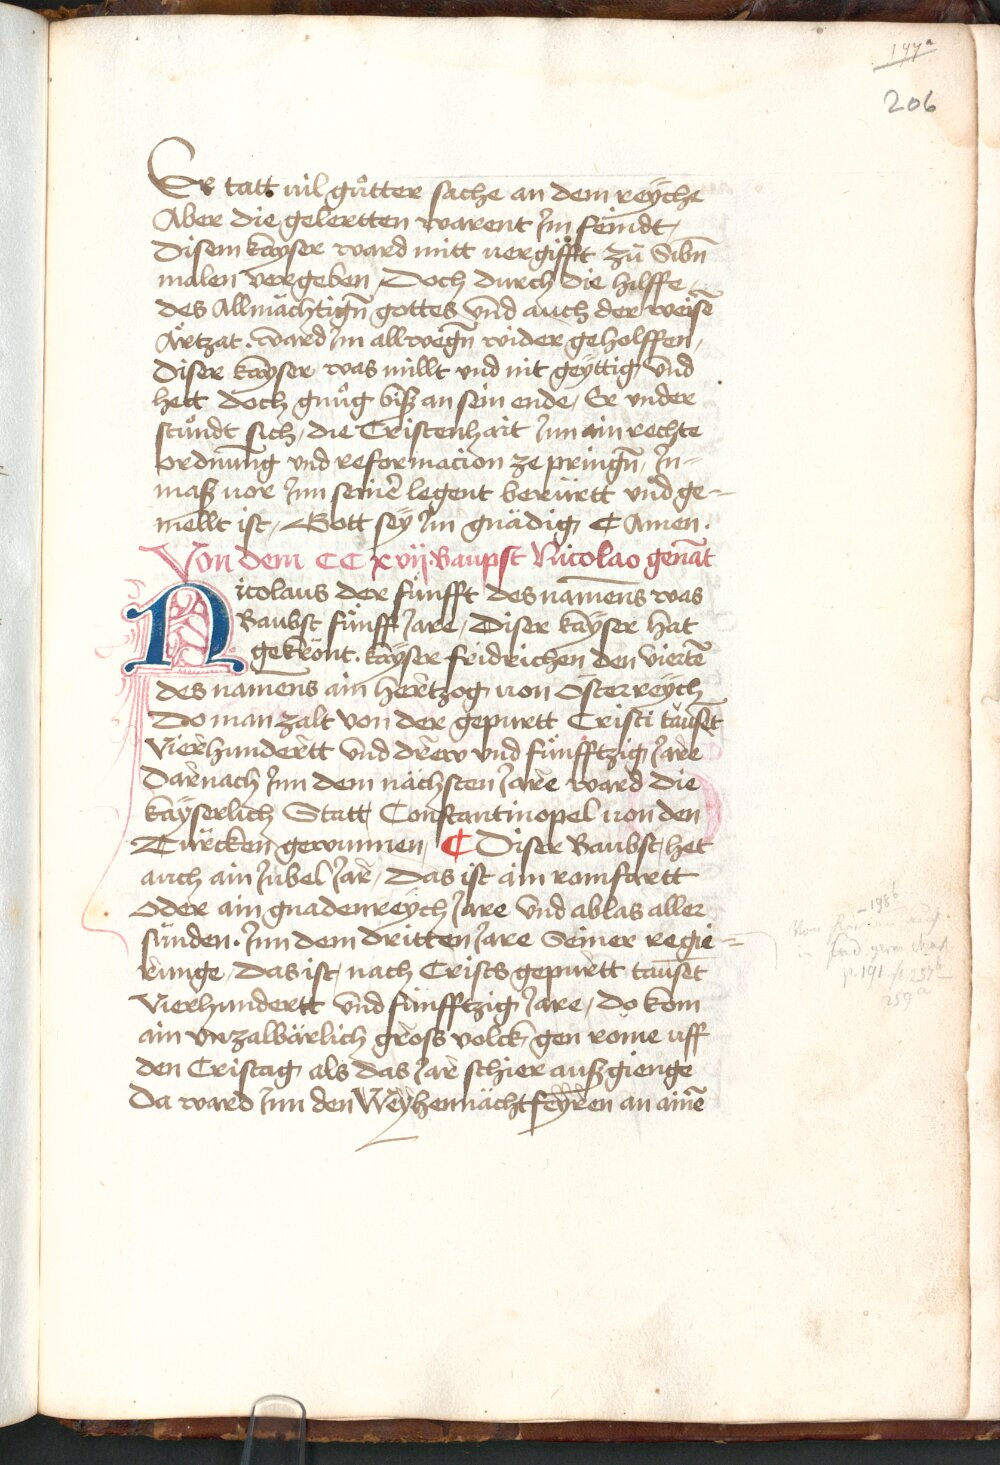 197ᵃ
206
Er tatt uil gůtter sache an dem reÿche
Aber die gelertten warent Jm feindt,
Disem kayser ward mitt uergifft zů Sibn̄
malen vergeben, Doch durch die hilffe,
des Allmächtign̄ gottes vnd auch der weÿsē
Ärtzat. ward Jm allwegn̄ wider geholffen,
Diser kayser was millt vnd nit geÿttig vnd
hett doch gnůg biß an sein ende, Er vnder
stůndt sich, die Cristenhait Jnn ain rechte
ordnung vnd reformacion ze pringn̄, Jn-
maß uor Jnn seinē legent berürtt vnd ge-
mellt ist, Gott seÿ Jm gnädig ¶ Amen.
Von dem CC xvij. Baupst Nicolao genāt
Nicolaus der fünfft des namens was
Baubst fünff Jare, Diser kaÿser hat
gekrönt. kaÿser fridrichen den viertē
des namens ain hertzog uon Osterreÿch
Do man zalt von der gepurtt Cristi tausēt
Vierhundertt vnd drew vnd fünfftzig Jare
Darnach Jnn dem nächsten Jare ward die
kaÿserlich Statt Constantinopel uon den
Türcken gewunnen, ¶ Diser Baubst, het
auch ain Jubel Jar, Das ist ain romfartt
oder ain gnadenreÿch Jare vnd ablas aller
sünden. Jnn dem dritten Jare Seiner regie-
runge, Das ist, nach Crists gepurtt tauset
Vierhundertt vnd fünfftzig Jare, do kom
ain vnzalbärlich gross volck gen rome uff
den Cristag als das Jar schier außgienge
Da ward Jnn den Weÿhennächt feÿren an ainē
-198ᵇ
p. 191
259ᵃ